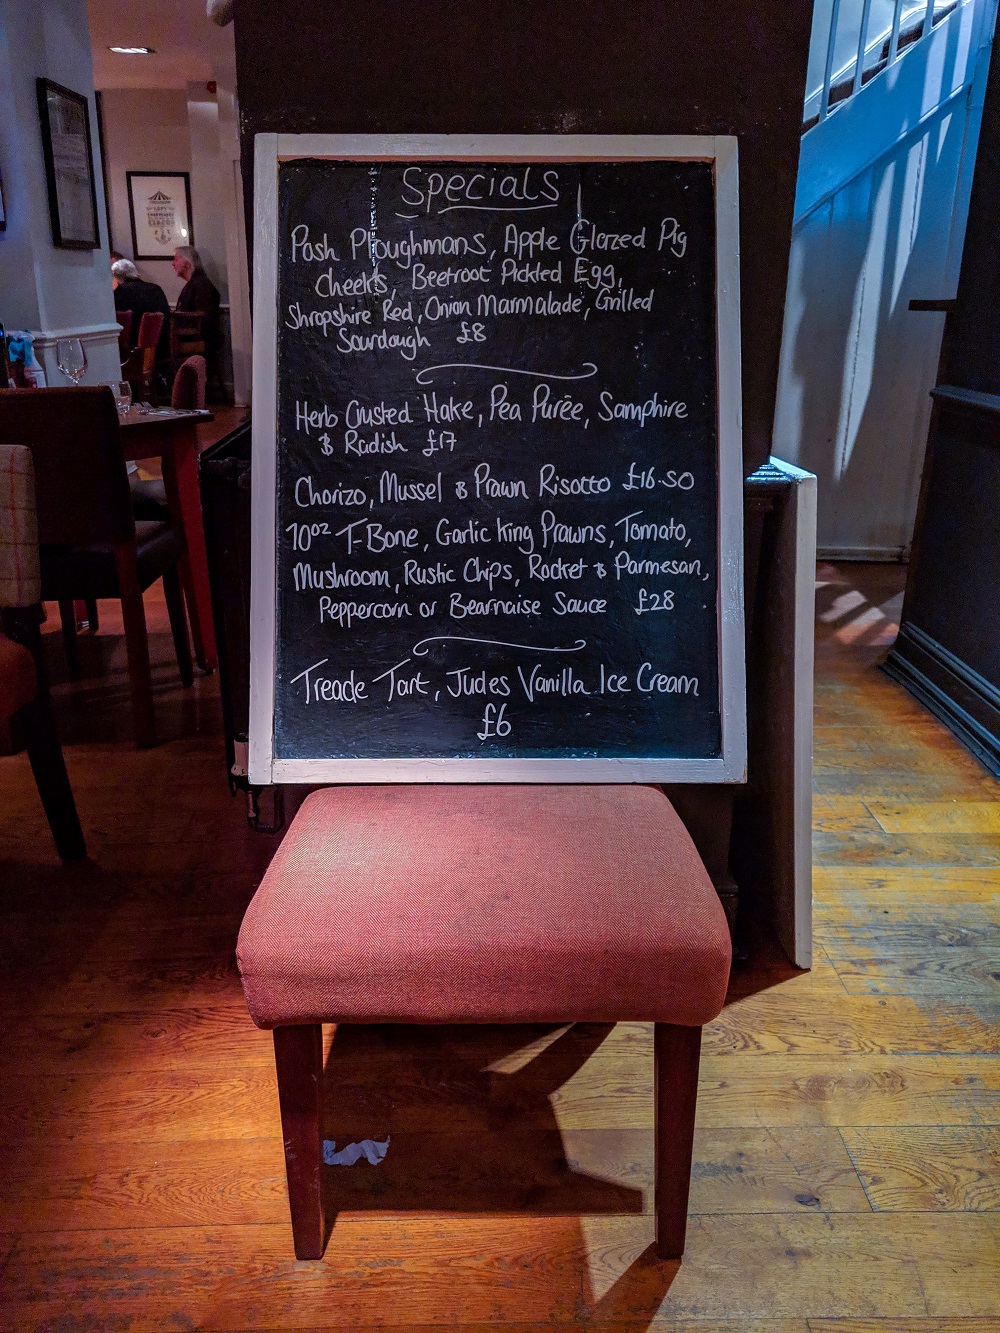 Specials
Posh Ploughmans, Apple Glazed Pig
Cheeks, Beetroot Pickled Egg,
Shropshire Red, Onion Marmalade, Grilled
Sourdough £8
Herb Crusted Hake, Pea Purée, Samphire
& Radish £17
Chorizo, Mussel & Prawn Risotto £16.50
10oz T-Bone, Garlic King Prawns, Tomato,
Mushroom, Rustic Chips, Rocket & Parmesan,
Peppercorn or Bearnaise Sauce £28.
Treacle Tart, Judes Vanilla Ice Cream
£6